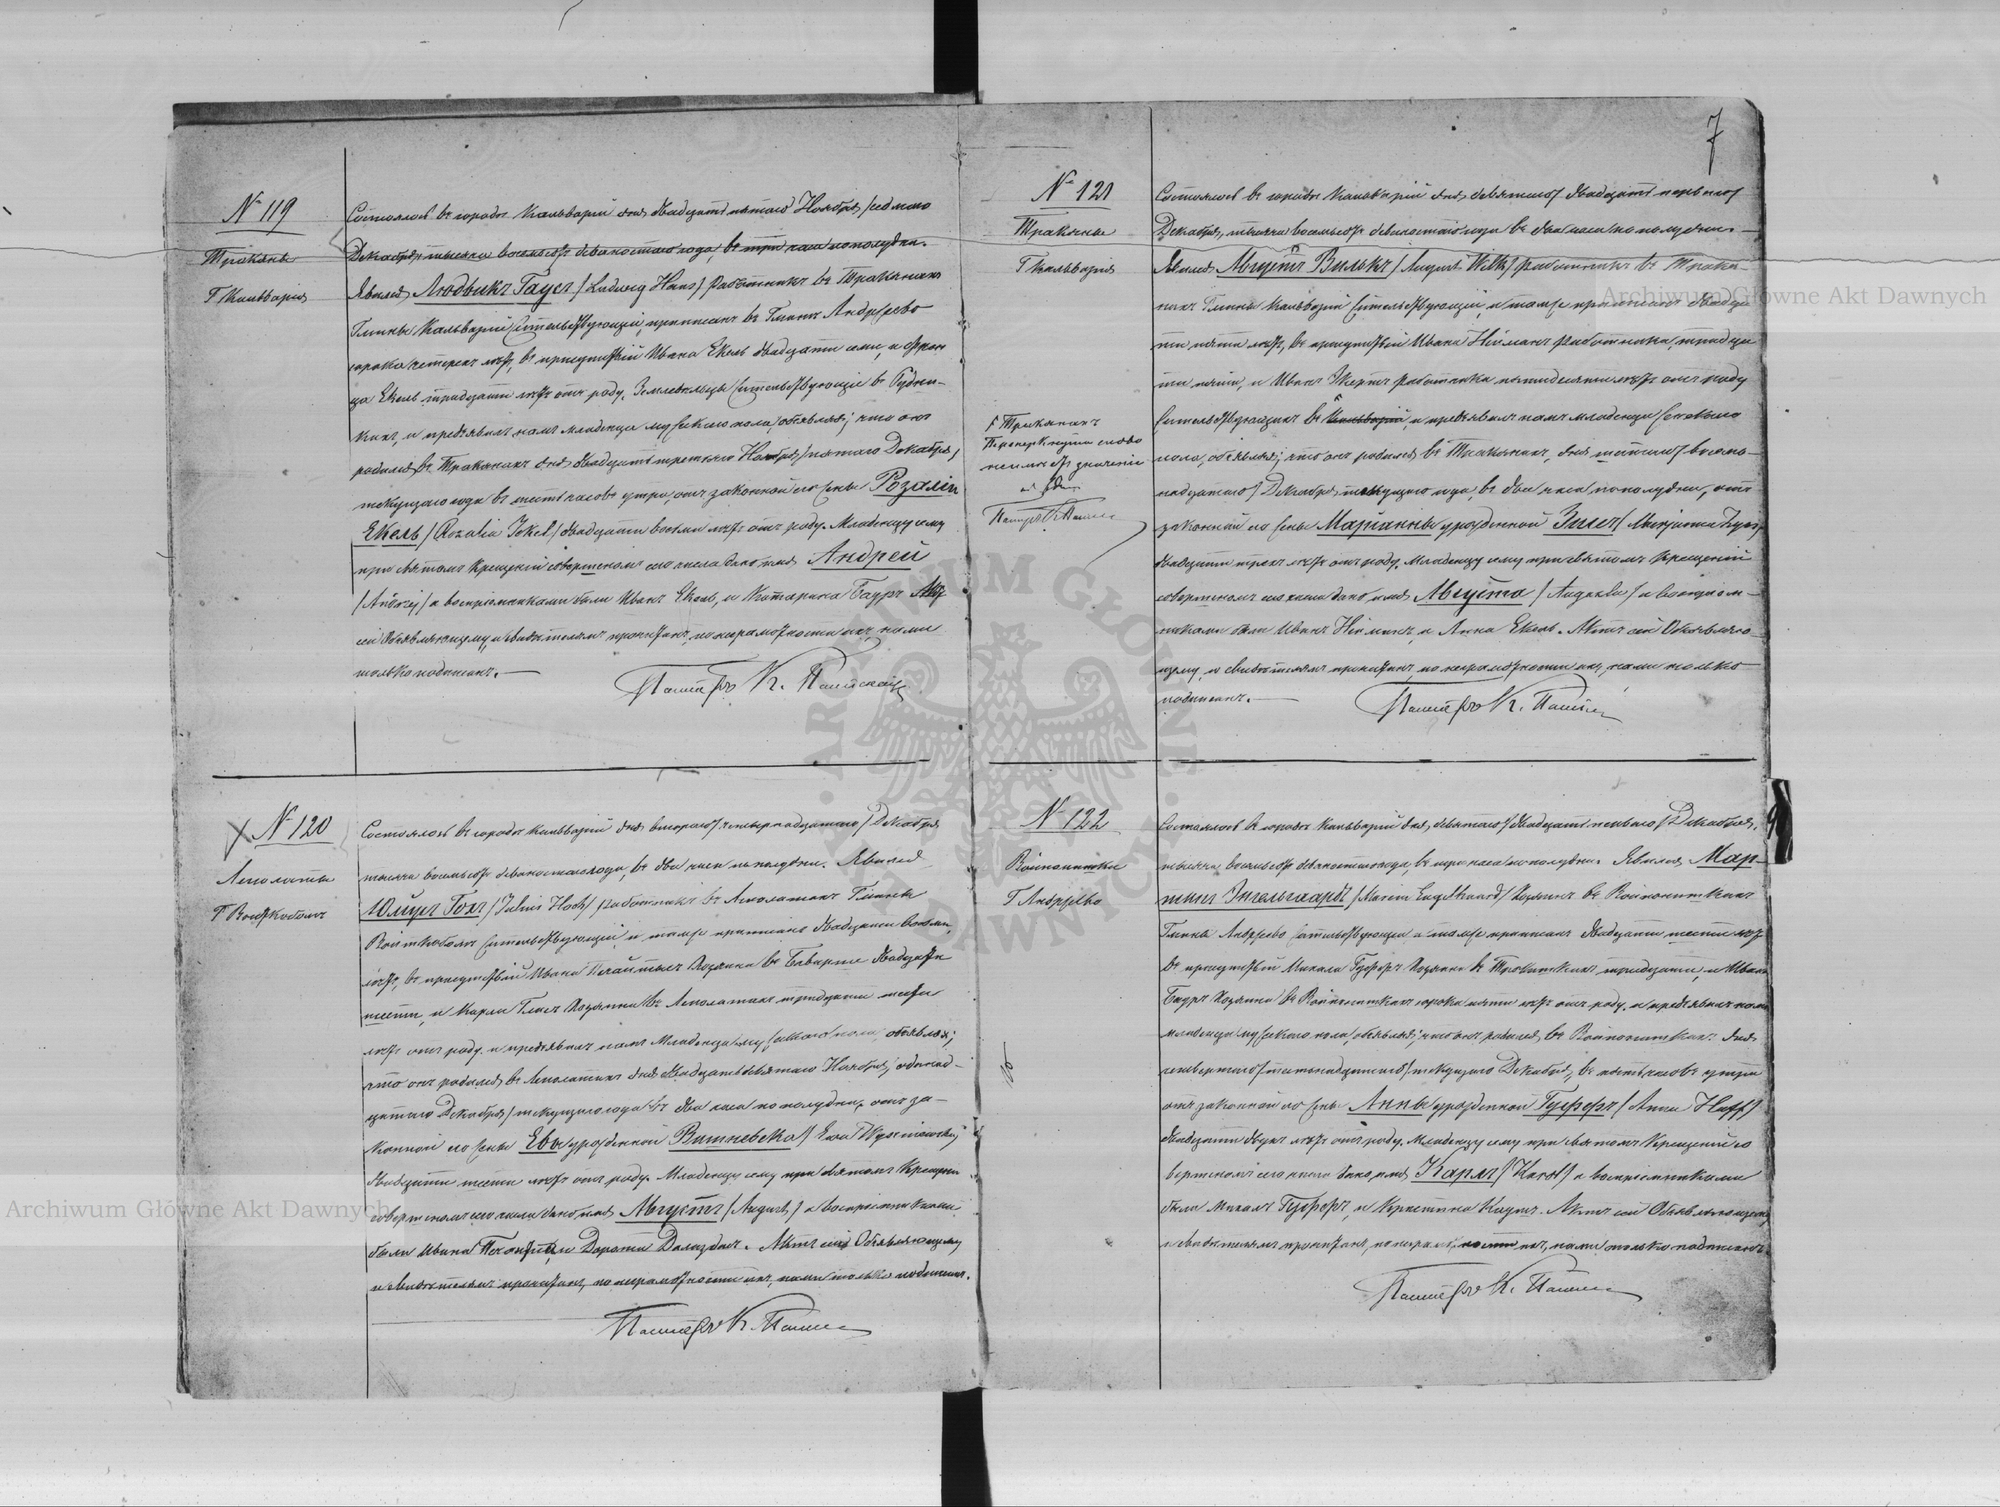 № 119
Тракяны
Г. Кальварія
Состоялось въ городѣ Кальваріи дня двадцать пятого Ноября /седмого
Декабря/ тысяча восемьсотъ девяностаго года, въ три часа пополудни.
Явился Людвикъ Гаусъ /Ludwig Haus/ работникъ въ Траkянахъ
Гмины Кальварія жительствующій, приписанъ въ Гминѣ Андржеево
сорока четырехъ лѣтъ, въ присутствіи Ивана Екель двадцати семи, и Фран
ца Екель тридцати лѣтъ отъ роду, Земледѣльцы жительствующіе въ
и предъявилъ намъ младенца мужескаго пола, объявляя; что онъ
родился въ Тракянахъ дня двадцать третьяго Ноября /пятого Декабря/
текущаго года въ шесть часовъ утра, отъ законной его жены Розаліи
Екель /Rozalia Jekel/ двадцати восьми лѣтъ отъ роду. Младенцу сему
при святомъ Крещеніи совершенномъ сего числа дано имя Андрей
/Andrzej/ а воспріемниками были Иванъ Екель, и Катарина Бауръ Актъ
сей Объявляющему, и свидѣтелямъ прочитанъ, по неграмотности ихъ, нами
только подписанъ.
Пасторъ К.
№ 120
Г.
Состоялось въ городѣ Кальваріи дня второго /четырнадцатаго/ Декабря
тысяча восемьсотъ девяностаго года, въ два часа пополудни. Явился
Юліусъ Гохъ /Julius Hoch/ работникъ въ Гмины
жительствующій, и тамже приписанъ двадцати восьми
лѣтъ, въ присутствіи Ивана хозяина въ двадцати
шести, и Карла хозяина въ тридцати
лѣтъ отъ роду, и предъявилъ намъ Младенца мужескаго пола, объявляя;
что онъ родился въ дня двадцать девятаго Ноября /одинад-
цатаго Декабря/ текущаго года въ два часа пополудни, отъ за-
конной его жены Евы урожденной Вишневска /Ewa
двадцати шести лѣтъ отъ роду. Младенцу сему при святомъ Крещеніи
совершенномъ сего числа дано имя Августъ /August/ а воспріемниками
были Иванъ и Дорота Актъ сей Объявляющему
и свидѣтелямъ прочитанъ, по неграмотности ихъ, нами только подписанъ.
Пасторъ К.
7
№ 121
Тракяны
Г. Кальварія
Состоялось въ городѣ Кальваріи дня девятаго /двадцать перваго/
Декабря, тысяча восемьсотъ девяностаго года въ два часа пополудни.
Явился Августъ Вилькъ /August Wilk/ работникъ въ Трака-
нахъ Гмины Кальварія жительствующій, и тамже приписанъ двадца
ти пяти лѣтъ, въ присутствіи Ивана Нейманъ работника, тридца
ти пяти, и Иванъ работника пятидесяти лѣтъ отъ роду
жительствующихъ въ Кальваріи, и предъявилъ намъ младенца женскаго
пола, объявляя; что онъ родился въ Тракянахъ, дня шестаго /восем-
надцатаго/ Декабря текущаго года, въ два часа пополудни, отъ
законной его жены Маріанны урожденной /Marjanna
двадцати трехъ лѣтъ отъ роду. Младенцу сему при святомъ Крещеніи
совершенномъ сего числа дано имя Августа /Augusta/ а воспріем-
никами были Иванъ Нейманъ, и Анна Екель. Актъ сей Объявляю-
щему, и свидѣтелямъ прочитанъ, по неграмотности ихъ, нами только
подписанъ.
Тракянахъ
слово
значенія
Пасторъ К.
Пасторъ К.
№ 122
Г. Андржеево
Состоялось въ городѣ Кальваріи дня девятаго /двадцать перваго/ Декабря,
тысяча восемьсотъ девяностаго года, въ три часа пополудни. Явился Мар-
тинъ Энгельгардъ /Marcin Engelhaard/ хозяинъ въ
Гмины Андржеево жительствующій и тамже приписанъ двадцати шести лѣтъ
въ присутствіи Михала хозяина въ тридцати, и Ивана
Бауръ хозяина въ сорока пяти лѣтъ отъ роду, и предъявилъ намъ
младенца мужескаго пола, объявляя; что онъ родился въ дня
четвертаго /шестнадцатаго/ текущаго Декабря, въ шесть часовъ утра
отъ законной его жены Анны урожденной /Anna Huff/
двадцати двухъ лѣтъ отъ роду. Младенцу сему при святомъ Крещеніи со
вершенномъ сего числа дано имя Карлъ /Karol/ а воспріемниками
были Михалъ и Кристина Актъ сей Объявляющему
и свидѣтелямъ прочитанъ, по неграмотности ихъ, нами только подписанъ.
Пасторъ К.
Archiwum Główne Akt Dawnych
Archiwum Główne Akt Dawnych
ARCHIWUM GŁÓWNE AKT DAWNYCH